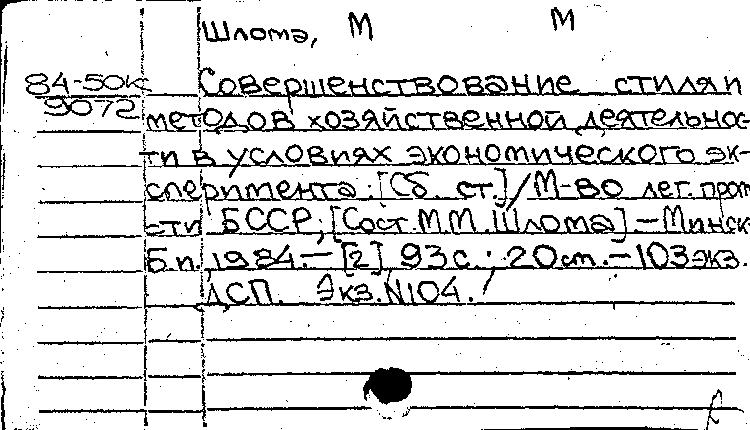 Шлома, М М
84-50к
9072
Совершенствование стиля и
методов хозяйственной деятельнос-
ти в условиях экономического эк-
сперимента: [Сб. ст.] / М-во лег. пром
сти БССР; [Сост. М.М. Шлома] - Минск
Б.и. 1984. - [2], 93 с.; 20 см. - 103 экз.
ДСП. Экз. N104.